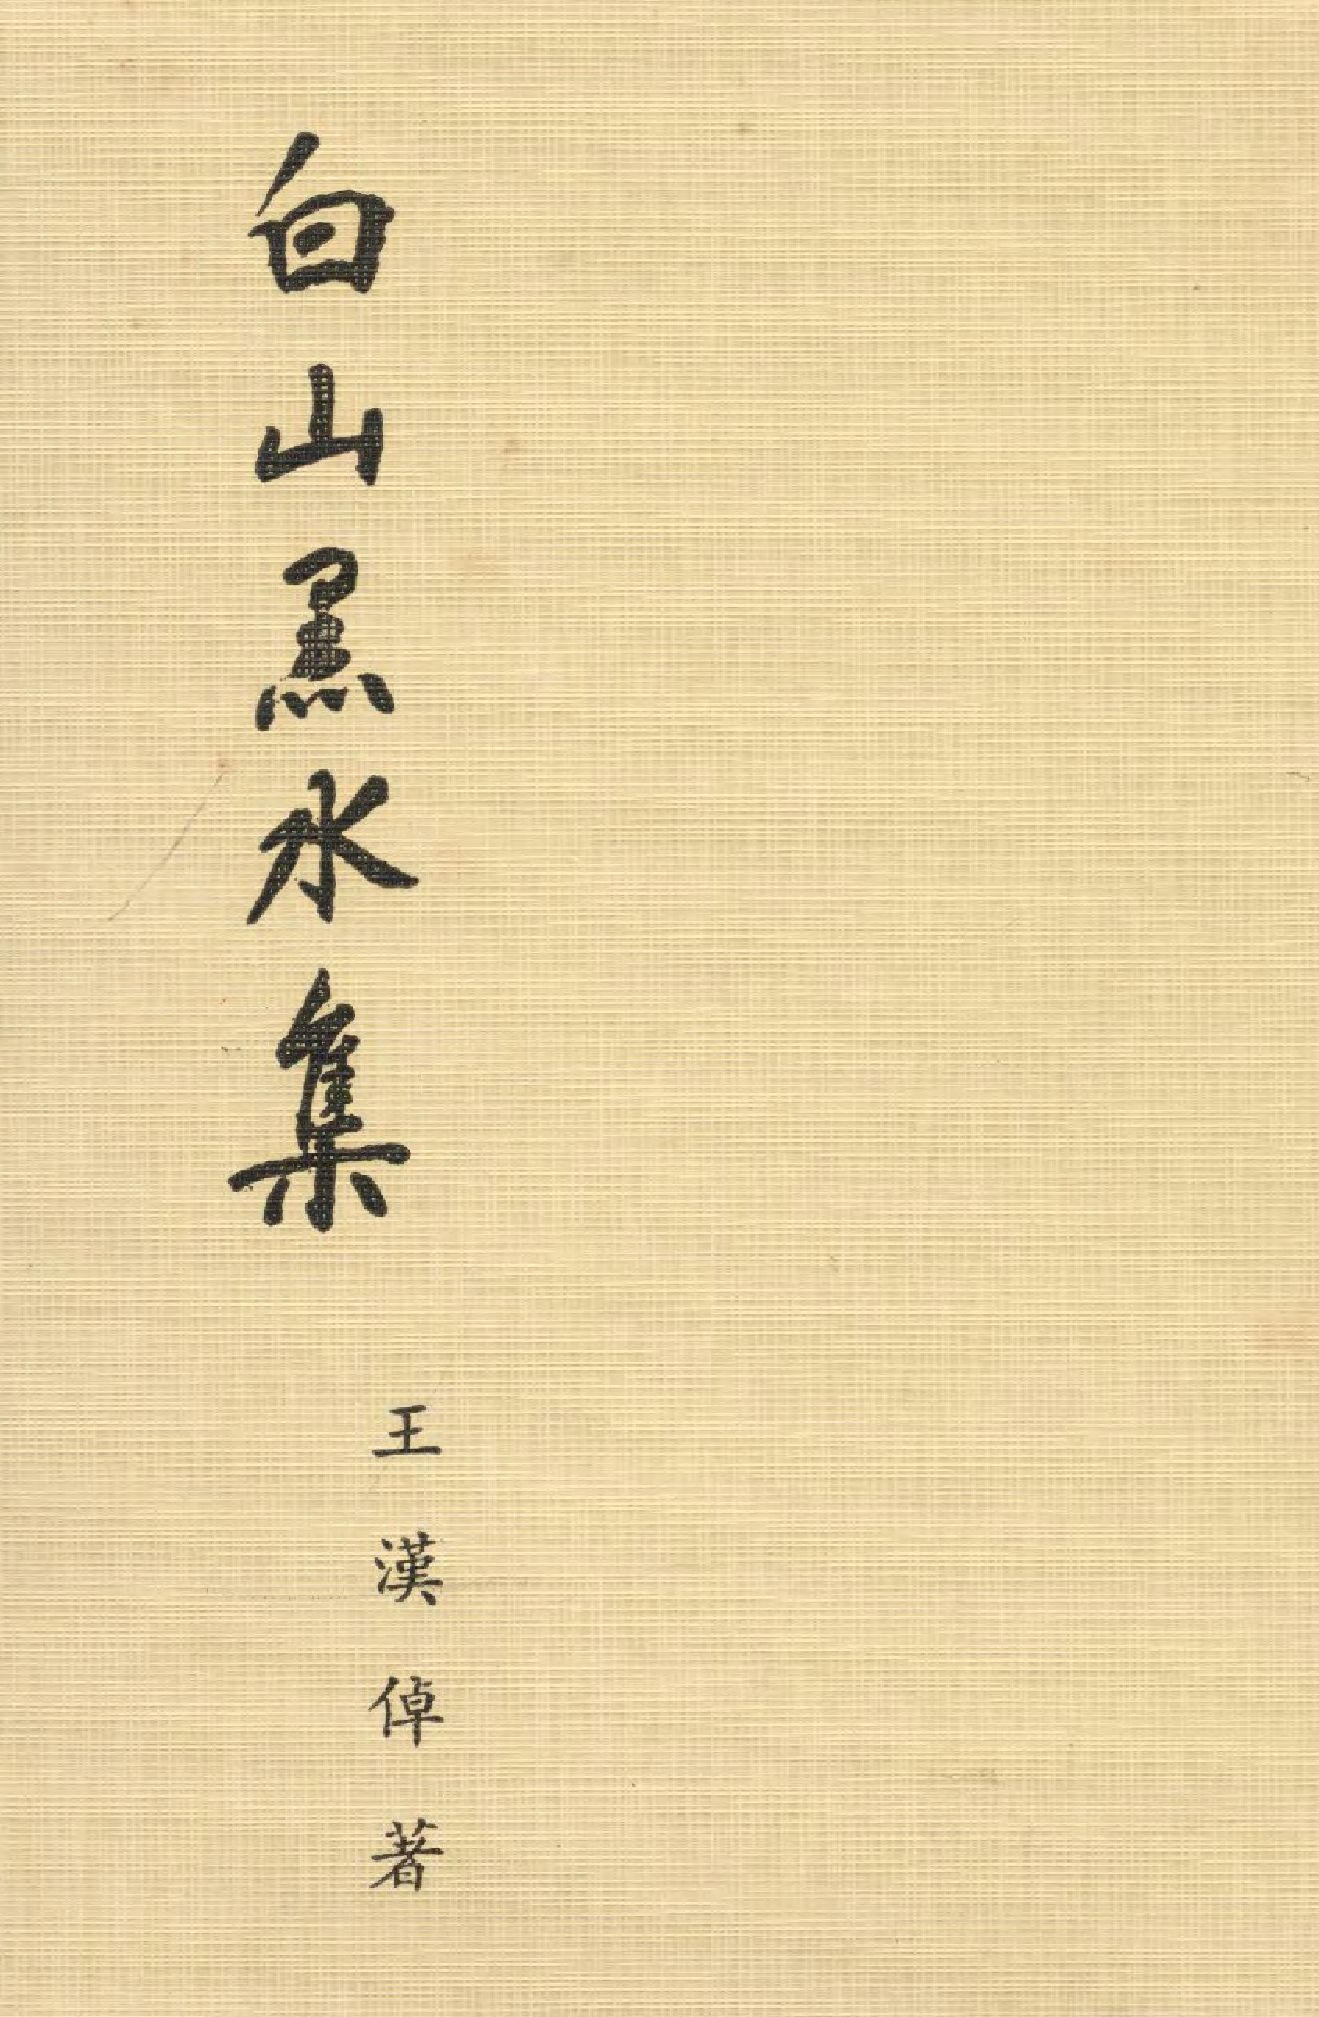 白山黑水集
王漢倬著